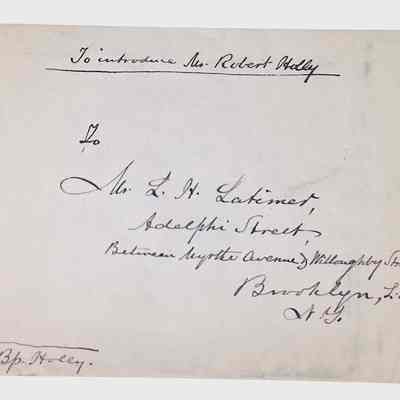 To introduce Mr. Robert Holly
To
Mr. L. H. Latimer,
Adelphi Street,
Between Myrtle Avenue & Willoughby Str
Brooklyn, L.
N.Y.
Bp. Holly.